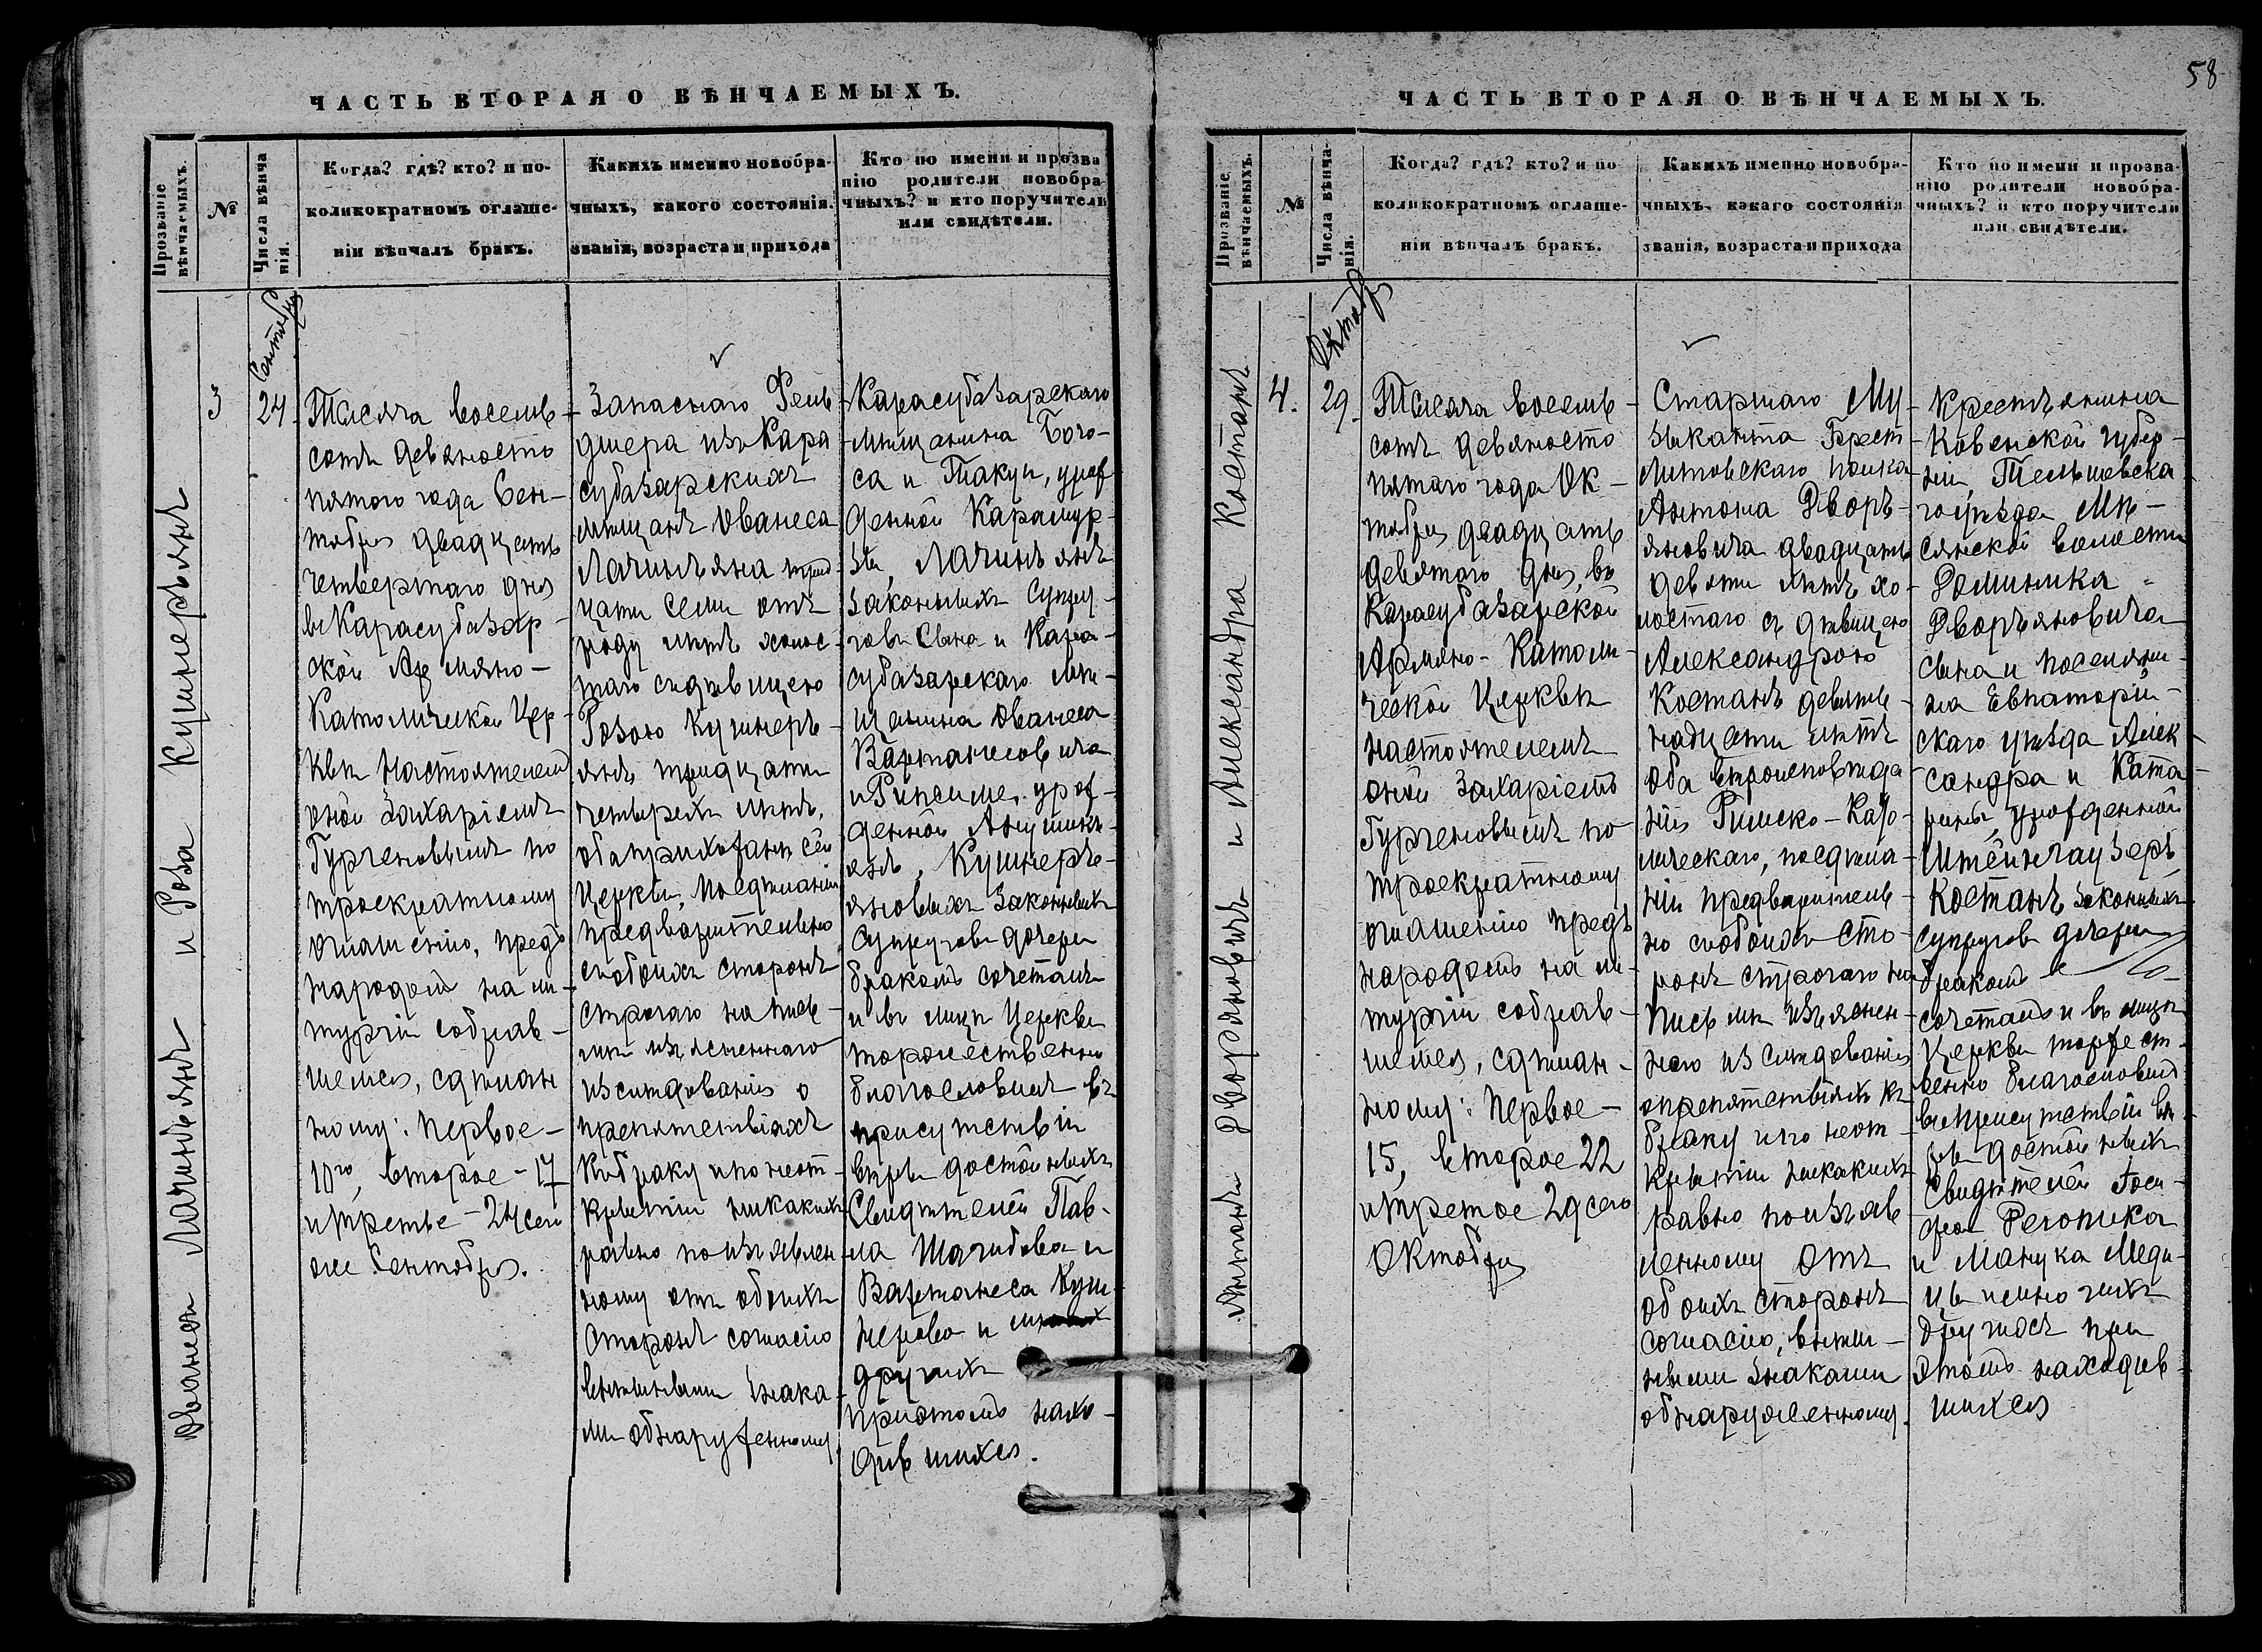 ЧАСТЬ ВТОРАЯ О ВѢНЧАЕМЫХЪ.
Прозваніе
вѣнчаемыхъ.
№
Числа вѣнча
нія.
Когда? гдѣ? кто? и по-
коликократномъ оглаше-
ніи вѣнчалъ бракъ.
Какихъ именно новобра-
чныхъ, какого состоянія.
званія, возраста и прихода
Кто по имени и прозва
нію родители новобра-
чныхъ? и кто поручители
или свидѣтели.
Ованеса Лачиньянъ и Роза Кушнерьянъ
3
Сентября
24
Тысяча восемь-
сотъ девяносто
пятого года Сен-
тября двадцать
четвертаго дня
въ Карасубазар-
ской Армяно-
Католической Цер-
кви настоятелемъ
оной Захаріемъ
Гургеновымъ по
троекратному
оглашенію, предъ
народомъ на ли-
тургіи собрав-
шемся, сдѣлан
ному: первое-
10го, второе - 17
и третье - 24 сего
же Сентября.
Запаснаго Фель-
дшера изъ Кара
субазарскихъ
мѣщанъ Ованеса
Лачиньяна трид
цати семи отъ
роду лѣтъ холос-
таго съ дѣвицею
Розою Кушнерь-
янъ тридцати
четырехъ лѣтъ,
оба прихожанъ сей
Церкви, по сдѣланіи
предварительно
съ обоихъ сторонъ
строгаго на пись-
мѣ изъясненнаго
изслѣдованія о
препятствіяхъ
къ браку и по неот-
крытіи никакихъ
равно по изъявлен-
ному отъ обоихъ
сторонъ согласію
внѣшними знака-
ми обнаруженному
Карасубазарскаго
мѣщанина Бого-
са и Такуи, урож
денной Карамур-
за, Лачиньянъ
законныхъ супру-
говъ сына и Кара-
субазарскаго мѣ-
щанина Ованеса
Вартанесовича
и Рипсиме, урож-
денной
Кушнерь-
яновыхъ законныхъ
супруговъ дочери
бракомъ сочеталъ
и въ лицѣ Церкви
торжественно
благословилъ въ
присутствіи
вѣры достойныхъ
Свидѣтелей Пав-
ла Шагибова и
Вартанеса Куш-
нерова и
другихъ
при этомъ нахо-
дившихся.
58
ЧАСТЬ ВТОРАЯ О ВѢНЧАЕМЫХЪ.
Прозваніе
вѣнчаемыхъ.
№
Числа вѣнча-
нія.
Когда? гдѣ? кто? и по
коликократномъ оглаше-
ніи вѣнчалъ бракъ.
Какихъ именно новобра-
чныхъ, какаго состоянія
званія, возраста и прихода
Кто по имени и прозва-
нію родители новобра-
чныхъ? и кто поручители
или свидѣтели.
Антонъ Дворяновичъ и Александра Костанъ
4.
Октября
29.
Тысяча восемь-
сотъ девяносто
пятаго года Ок-
тября двадцать
девятаго дня, въ
Карасубазарской
Армяно-Католи-
ческой Церкви
настоятелемъ
оной Захаріемъ
Гургеновымъ по
троекратному
оглашенію предъ
народомъ на ли-
тургіи собрав-
шемся, сдѣлан-
ному: первое-
15, второе 22
и третое 29 сего
Октября
Старшаго Му-
зыканта Брест-
Литовскаго полка
Антона Дворъ-
яновича двадцать
девяти лѣтъ хо-
лостаго съ дѣвицею
Александрою
Костанъ девят-
надцати лѣтъ
оба вѣроисповѣда-
нія Римско-Като-
лическаго, по сдѣла-
ніи предваритель-
но съ обоихъ сто-
ронъ строгаго на
письмѣ изъяснен-
наго изслѣдованія
о препятствіяхъ къ
браку и по неот-
крытіи никакихъ
равно по изъяв
ленному отъ
обоихъ сторонъ
согласію, внѣш-
ними знаками
обнаруженному.
Крестьянина
Ковенской губер-
ніи, Тельшевска
го уѣзда
волости
Доминика
Дворъяновича
сына и поселяни-
на Евпаторій-
скаго уѣзда Алек-
сандра и Ката-
рины, урожденной
Костанъ законныхъ
супруговъ дочери
бракомъ
сочеталъ и въ лицѣ
Церкви торжест-
венно благословилъ
въ присутствіи вѣ-
ры достойныхъ
Свидѣтелей
и Манука
другихъ при
этомъ находив-
шихся